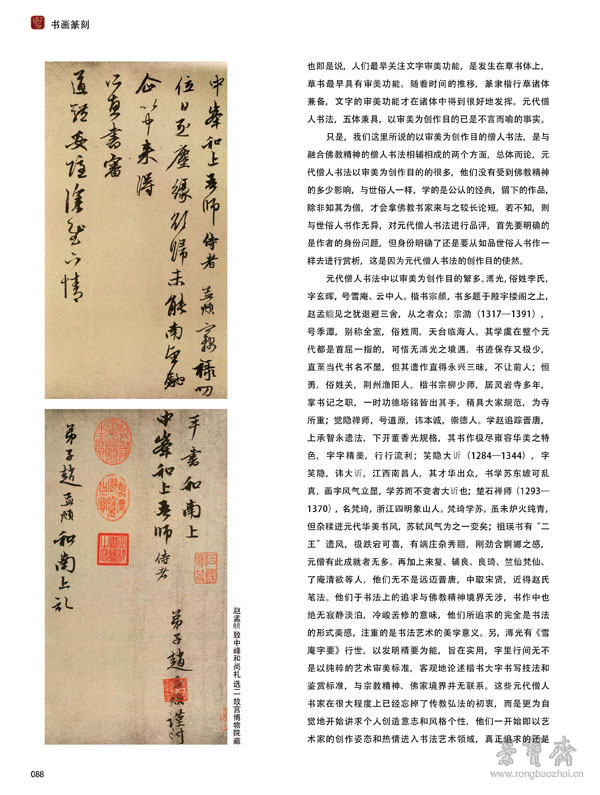 书画篆刻
中峯和上吾師 侍者 孟頫竊祿叨
位日逐塵緣欲歸未能南望馳
企以中来得
所惠書審
道體安隱深慰下情
弟子趙孟頫謹封
中峯和上吾師 侍者
平書和南上
弟子趙孟頫和南上
赵孟頫 致中峰和尚札 选二 故宫博物院藏
也即是说，人们最早关注文字审美功能，是发生在草书体上，
草书最早具有审美功能。随着时间的推移，篆隶楷行草诸体
兼备，文字的审美功能才在诸体中得到很好地发挥。元代僧
人书法，五体兼具，以审美为创作目的已是不言而喻的事实。
只是，我们这里所说的以审美为创作目的僧人书法，是与
融合佛教精神的僧人书法相辅相成的两个方面，总体而论，元
代僧人书法以审美为创作目的的很多，他们没有受到佛教精神
的多少影响，与世俗人一样，学的是公认的经典，留下的作品，
除非知其为僧，才会拿佛教书家来与之较长论短，若不知，则
与世俗人书作无异，对元代僧人书法进行品评，首先要明确的
是作者的身份问题，但身份明确了还是要从如品世俗人书作一
样去进行赏析，这是因为元代僧人书法的创作目的使然。
元代僧人书法中以审美为创作目的繁多。溥光，俗姓李氏，
字玄晖，号雪庵、云中人。楷书宗颜，书多题于殿宇楼阁之上，
赵孟頫见之犹退避三舍，从之者众；宗泐（1317—1391），
号季潭，别称全室，俗姓周，天台临海人。其学虞在整个元
代都是首屈一指的，可惜无溥光之境遇，书迹保存又极少，
直至当代书名不显，但其遗作直得永兴三昧，不让前人；恒
勇，俗姓关，荆州渔阳人。楷书宗柳少师，居灵岩寺多年，
掌书记之职，一时功德塔铭皆出其手，稍具大家规范，为寺
所重；觉隐禅师，号道原，讳本诚，崇德人。学赵追踪晋唐，
上承智永遗法，下开董香光规格，其书作极尽雍容华美之特
色，字字精美，行行流利；笑隐大訢（1284—1344），字
笑隐，讳大訢，江西南昌人，其才华出众，书学苏东坡可乱
真，画字风气立显，学苏而不变者大訢也；楚石禅师（1293—
1370），名梵琦，浙江四明象山人。梵琦学苏，虽未炉火纯青，
但杂糅进元代华美书风，苏轼风气为之一变矣；祖瑛书有“二
王”遗风，极跌宕可喜，有端庄杂秀丽，刚劲含婀娜之感，
元僧有此成就者无多。再加上来复、辅良、良琦、竺仙梵仙、
了庵清欲等人，他们无不是远迈晋唐，中取宋贤，近得赵氏
笔法。他们于书法上的追求与佛教精神境界无涉，书作中也
绝无寂静淡泊，冷峻苦修的意味，他们所追求的完全是书法
的形式美感，注重的是书法艺术的美学意义。另，溥光有《雪
庵字要》行世，以发明精要为能，旨在实用，字里行间无不
是以纯粹的艺术审美标准，客观地论述楷书大字书写技法和
鉴赏标准，与宗教精神、佛家境界并无联系。这些元代僧人
书家在很大程度上已经忘掉了传教弘法的初衷，而是更为自
觉地开始讲求个人创造意志和风格个性，他们一开始即以艺
术家的创作姿态和热情进入书法艺术领域，真正追求的还是
088
荣宝斋
www.rongbaozhai.cn